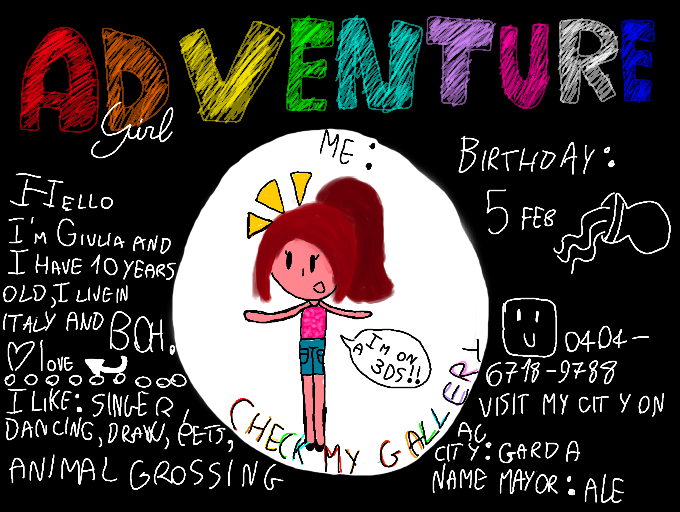 ADVENTURE
Girl
ME:
HELLO
I'M GIULIA AND
I HAVE 10 YEARS
OLD, I LIVE IN
ITALY AND BOH.
LOVE
I LIKE: SINGER,
DANCING, DRAW, PETS,
ANIMAL GROSSING
I'M ON
A 3DS!!
CHECK MY GALLERY
BIRTHDAY:
5 FEB
0404-
6718-9788
VISIT MY CITY ON
AC
CITY: GARDA
NAME MAYOR: ALE